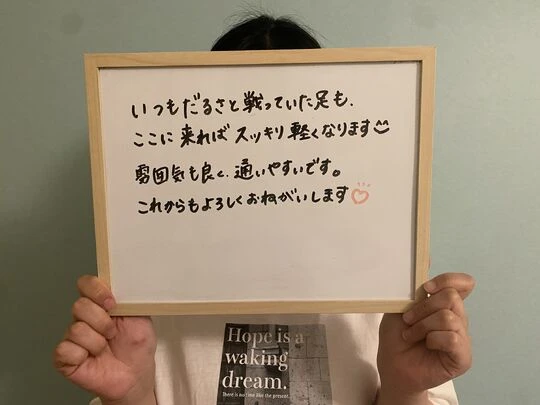 いつもだるさと戦っていた足も、
ここに来ればスッキリ軽くなります
雰囲気も良く、通いやすいです。
これからもよろしくおねがいします
Hope is a
waking
dream.
There is no time like the present.